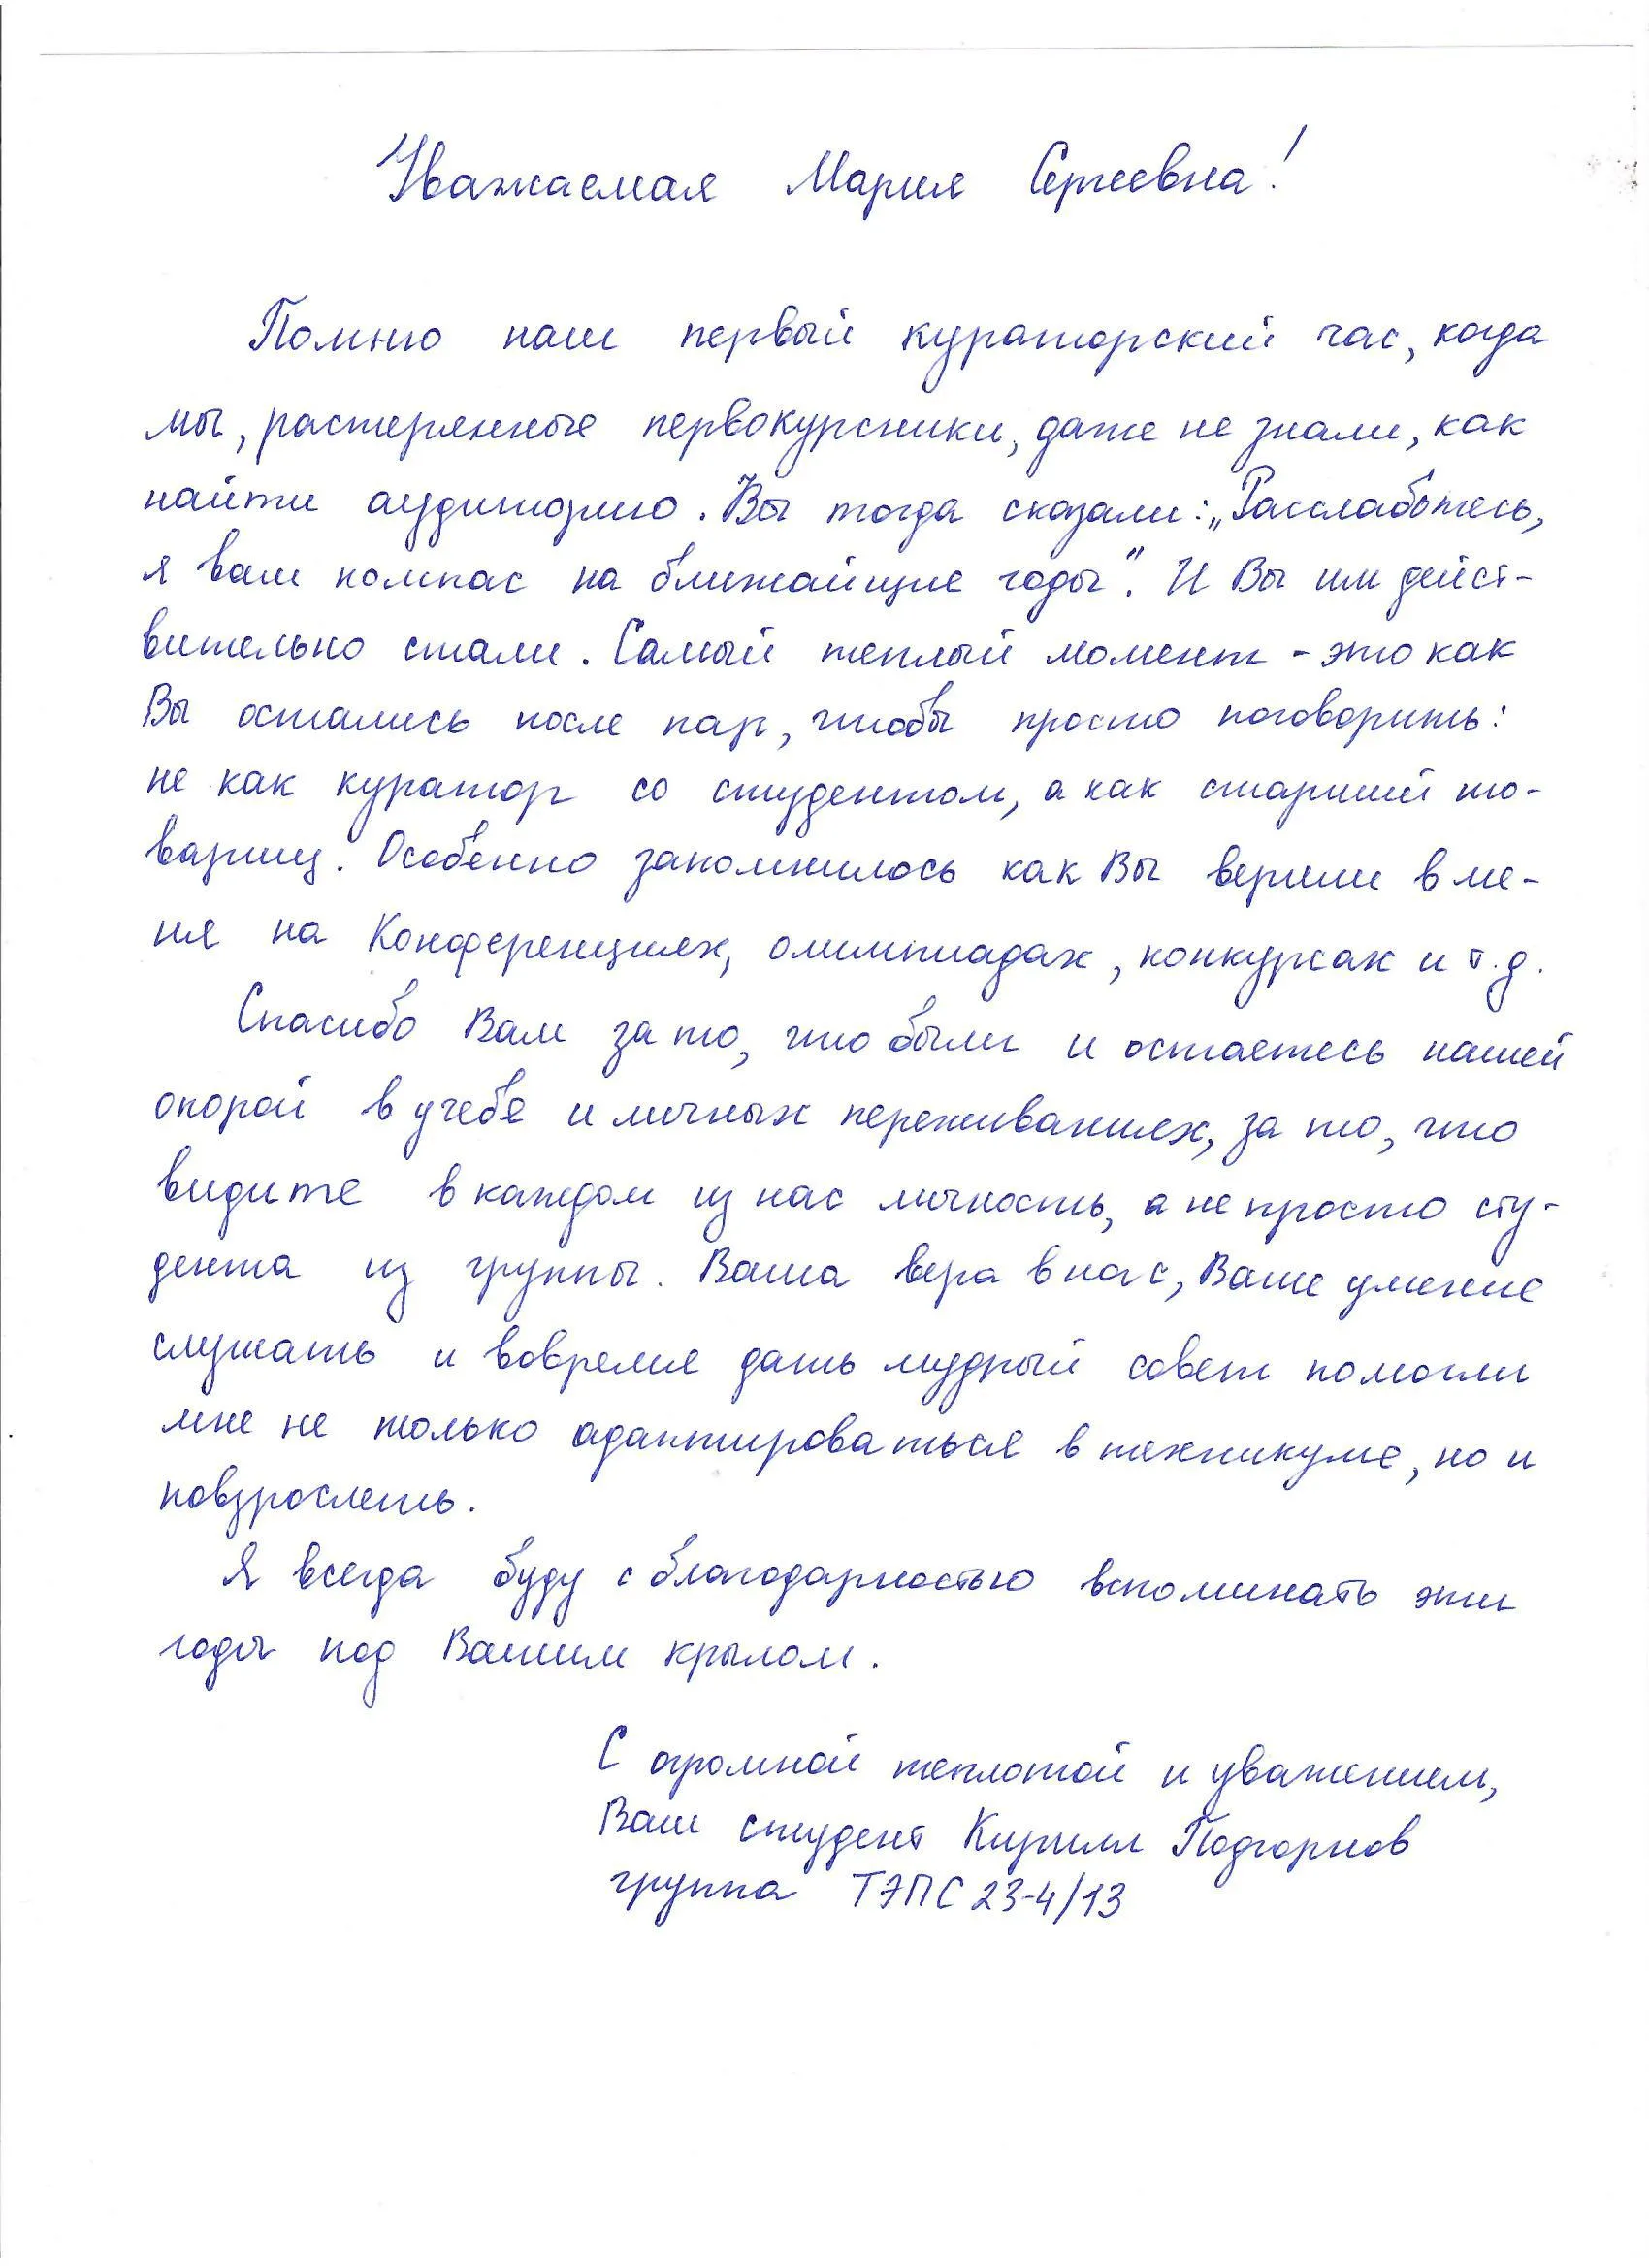 Уважаемая Мария Сергеевна!
Помню наш первый кураторский час, когда
мы, растерянные первокурсники, даже не знали, как
найти аудиторию. Вы тогда сказали: „Расслабьтесь,
я ваш компас на ближайщие годы". И Вы им дейст-
вительно стали. Самый теплый момент - это как
Вы остались после пар, чтобы просто поговорить:
не как куратор со студентом, а как старший то-
варищ. Особенно запомнилось как Вы верили в ме-
ня на Конференциях, олимпиадах, конкурсах и т.д.
Спасибо Вам за то, что были и остаетесь нашей
опорой в учебе и личных переживаниях, за то, что
видите в каждом из нас личность, а не просто сту-
дента из группы. Ваша вера в нас, Ваше умение
слушать и вовремя дать мудрый совет помогли
мне не только адаптироваться в техникуме, но и
повзрослеть.
Я всегда буду с благодарностью вспоминать эти
годы под Вашим крылом.
С огромной теплотой и уважением,
Ваш студент Кирилл Подгорнов
группа ТЭПС 23-4/13